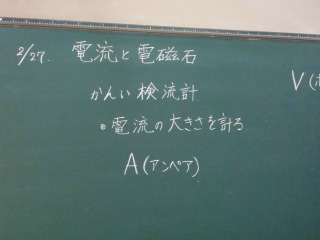 2/27. 電流と電磁石
かんい検流計
電流の大きさを計る
A(アンペア)
V(